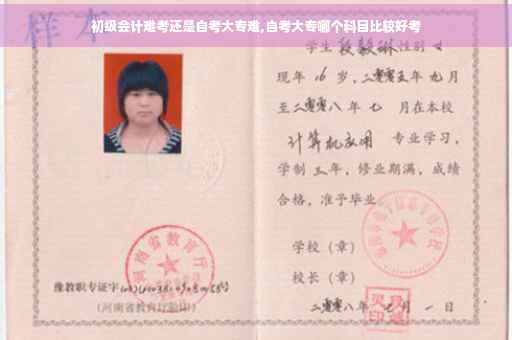 初级会计难考还是自考大专难,自考大专哪个科目比较好考
样本
学生 段毅琳 性别 女
现年 16 岁,二零零五年 九月
至二零零八年 七 月在本校
计算机应用 专业学习,
学制 三年,修业期满,成绩
合格,准予毕业
学校(章)
校长(章)
二零零八年 七月 一日
河南省教育厅
豫教职专证字
(河南省教育厅验印)